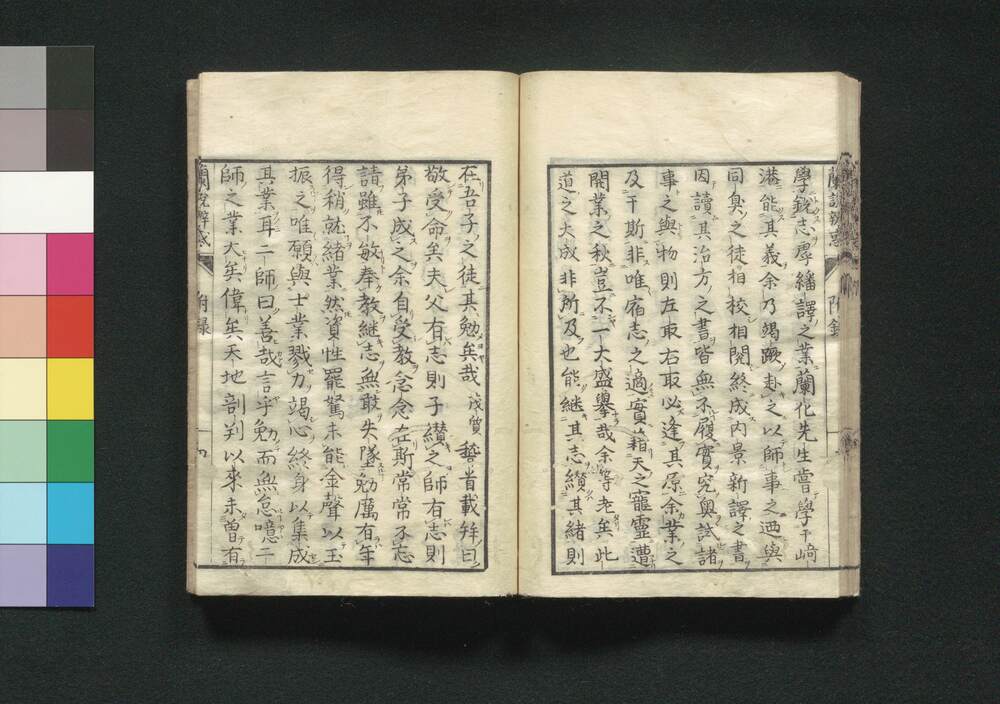 學銳志厚繙譯之業蘭化先生嘗學于﨑
港能其義余乃竭蹶赴之以師事之廼與
同臭之徒相校相閱終成内景新譯之書
因讀其治方之書皆無不履實究奧試諸
事之與物則左取右取必逢其原余業之
及于斯非唯宿志之適實藉天之寵靈遭
開業之秋豈不一大盛擧哉余等老矣此
道之大成非所及也能繼其志纘其緒則
附錄
在吾子之徒其勉矣哉茂質稽首載拜曰
敬受命矣夫父有志則子纘之師有志則
弟子成之余自受教念念在斯常常不忘
請雖不敏奉教継志無敢失墜勉厲有年
得稍就緒業然資性罷駑未能金聲以玉
振之唯願與士業戮力竭心終身以集成
其業耳二師曰善哉言乎勉而無怠噫二
師之業大矣偉矣天地剖判以來未曽有
蘭 附録